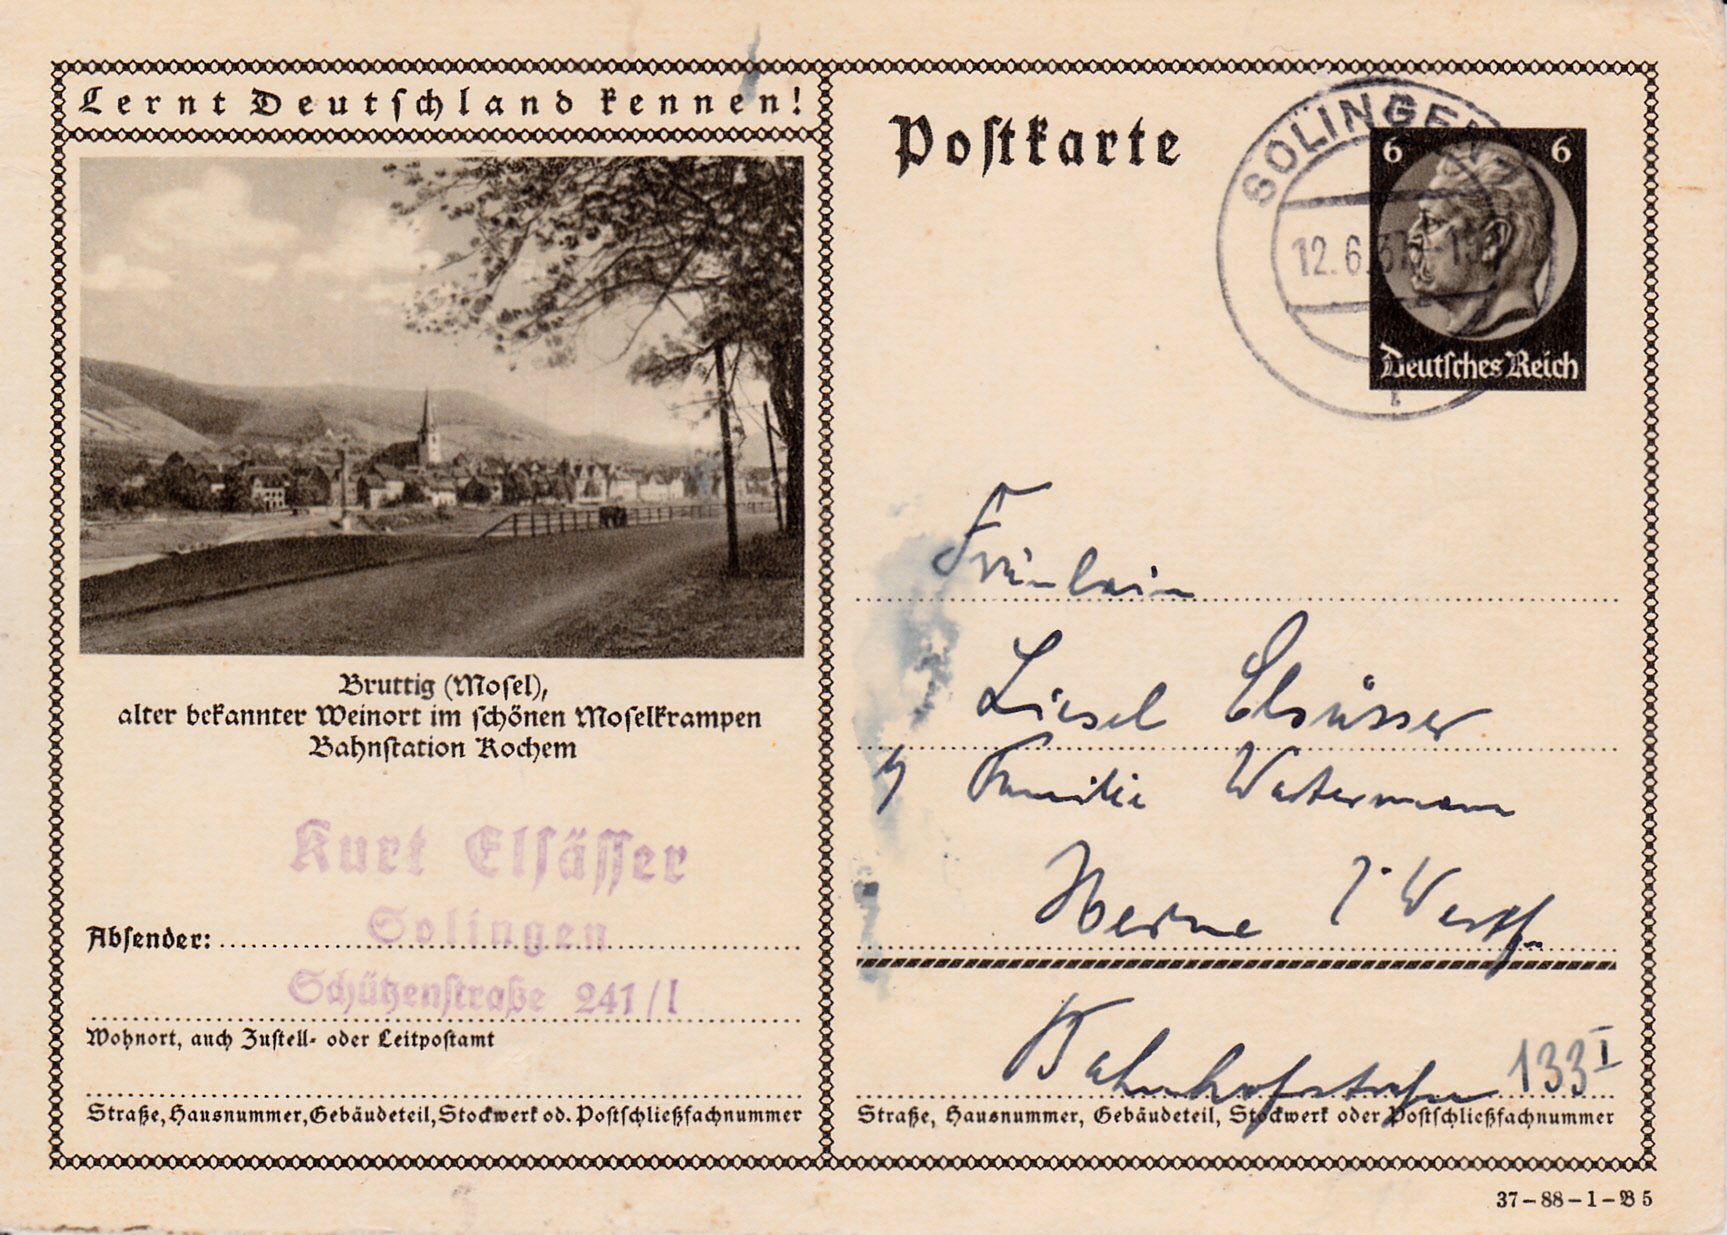 Lernt Deutschland kennen!
Bruttig (Mosel),
alter bekannter Weinort im schönen Moselkrampen
Bahnstation Kochem
Kurt Elsässer
Solingen
Schützenstraße 241/I
Absender:
Wohnort, auch Zustell- oder Leitpostamt
Straße, Hausnummer, Gebäudeteil, Stockwerk od. Postschließfachnummer
Postkarte
SOLINGEN
12.6.37
6 6
Deutsches Reich
Fräulein
Liesel Elsässer
Familie Watermann
Herne i. Westf.
Bahnhofstraße 133 I
Straße, Hausnummer, Gebäudeteil, Stockwerk oder Postschließfachnummer
37-88-1-B 5